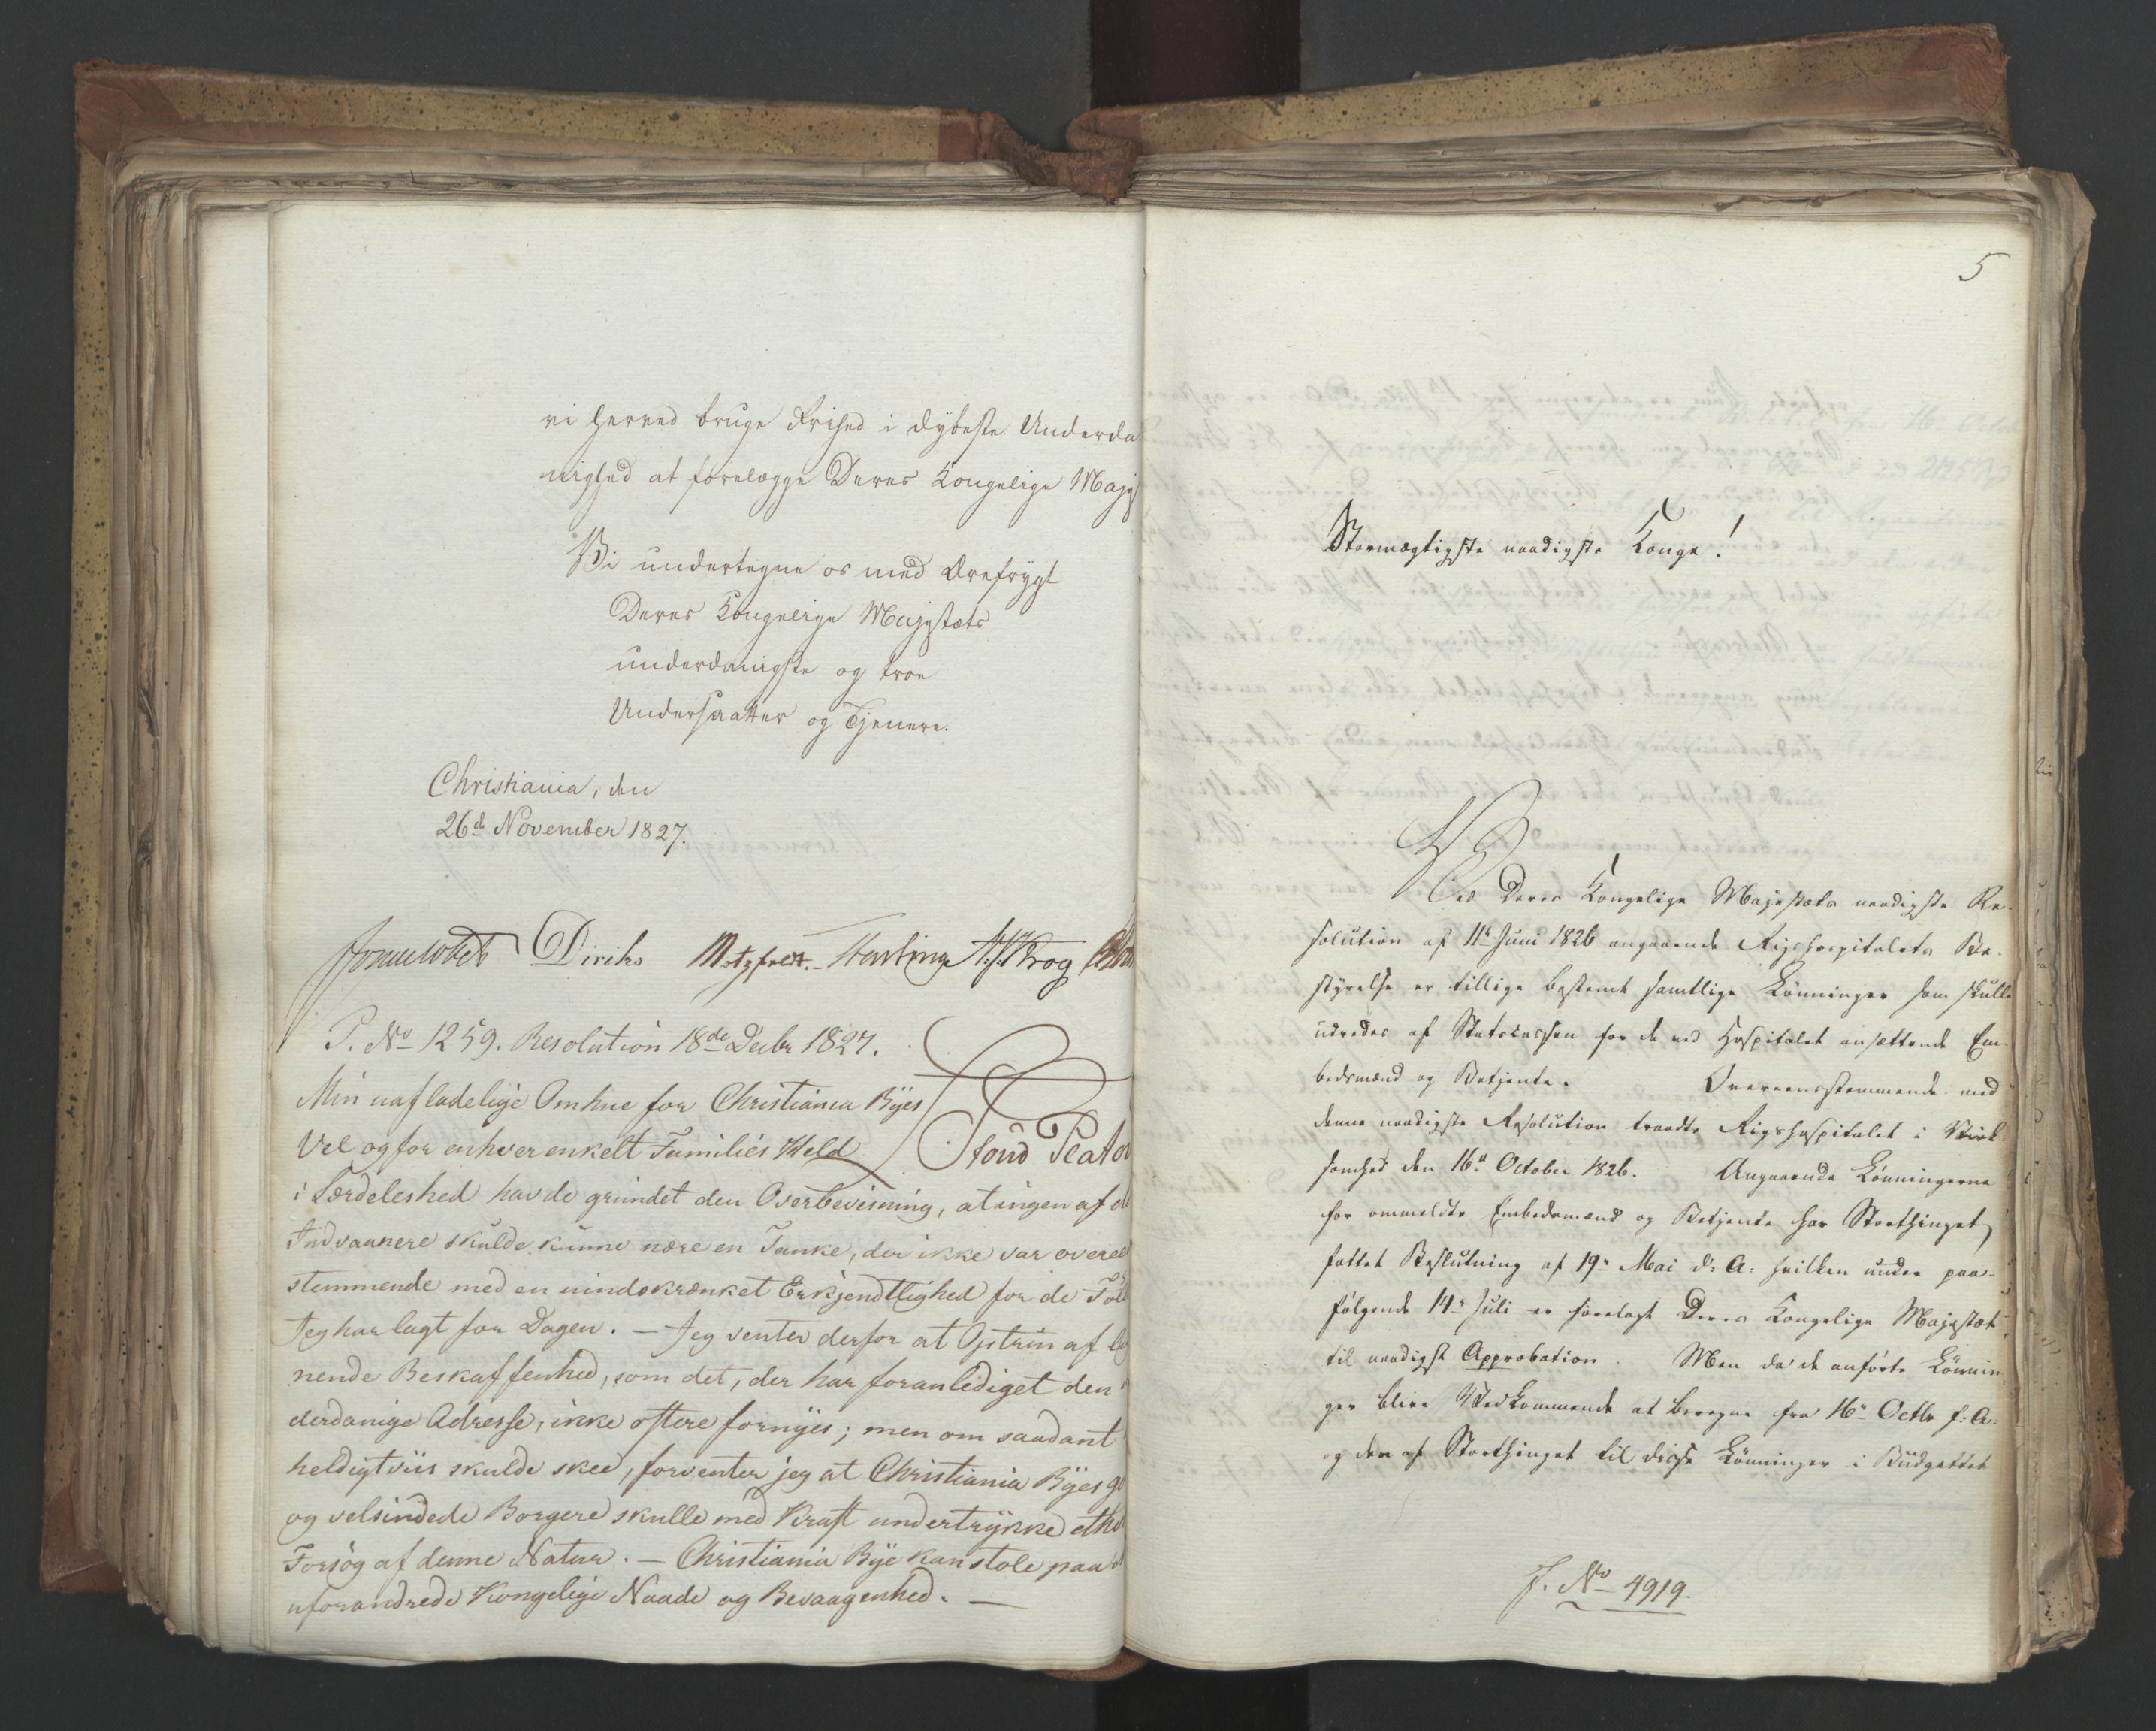 vi herved bruge Frihed i dybeste Underda-
nighed at forelægge Deres Kongelige Maje
Vi undertegne os med Ærefrygt
Deres Kongelige Majestæts
underdanigste og troe
Undersaatter og Tjenere.
Christiania, den
26de November 1827.
Diriks Motzfeldt. Harling Krog
P. No 1259. Resolution 18de Decbr 1827.
Min uafladelige Omhue for Christiania Byes
Vel og for enhver enkelt Families Held
i Særdeleshed havde grundet den Overbeviisning, at ingen af d
Indvaanere skulde kunne nære en Tanke, der ikke var overee
stemmende med en uindskrænket Erkjendtlighed for de Føl
Jeg har lagt for Dagen. — Jeg venter derfor at Optrin af li
nende Beskaffenhed, som det, der har foranlediget den
derdanige Adresse, ikke oftere fornyes; men om saadant
heldigtviis skulde skee, forventer jeg at Christiania Byes go
og velsindede Borgere skulle med Kraft undertrykke ethv
Forsøg af denne Natur. — Christiania Bye kan stole paa
uforandrede Kongelige Naade og Bevaagenhed. —
5
Stormægtigste naadigste Konge!
Ved Deres Kongelige Majestæts naadigste Re-
solution af 11te Juni 1826 angaaende Rigshospitalets Be-
styrelse er tillige bestemt samtlige Lønninger som skulle
udredes af Statskassen for de ved Hospitalet ansættende Em-
bedsmænd og Betjente. Overeensstemmende med
denne naadigste Resolution traadte Rigshospitalet i Virk-
somhed den 16de October 1826. Angaaende Lønningerne
for ommeldte Embedsmænd og Betjente har Storthinget
fattet Beslutning af 19de Mai d: A: hvilken under paa-
følgende 14de Juli er forelagt Deres Kongelige Majestæt
til naadigst Approbation. Men da de anførte Lønnin-
ger blive Vedkommende at beregne fra 16de Octbr f: A:
og den af Storthinget til disse Lønninger i Budgettet
J. No 4919.